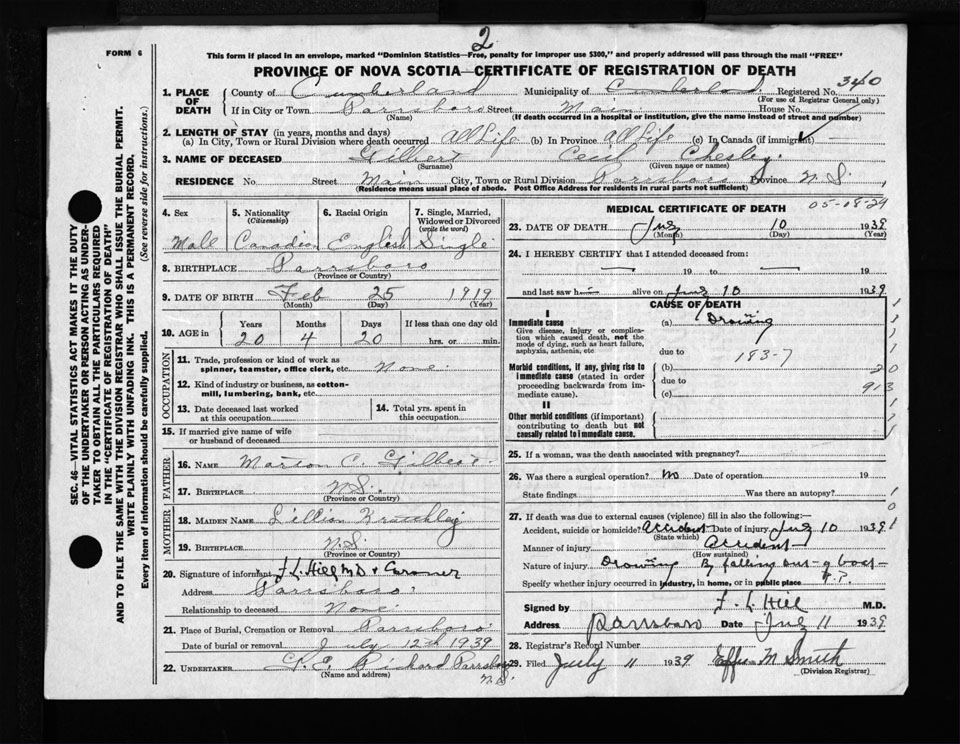 2
FORM 6
This form if placed in an envelope, marked "Dominion Statistics—Free, penalty for improper use $300," and properly addressed will pass through the mail "FREE"
PROVINCE OF NOVA SCOTIA—CERTIFICATE OF REGISTRATION OF DEATH
SEC. 46—VITAL STATISTICS ACT MAKES IT THE DUTY OF THE UNDERTAKER OR PERSON ACTING AS UNDERTAKER TO OBTAIN ALL THE PARTICULARS REQUIRED IN THE "CERTIFICATE OF REGISTRATION OF DEATH" AND TO FILE THE SAME WITH THE DIVISION REGISTRAR WHO SHALL ISSUE THE BURIAL PERMIT.
WRITE PLAINLY WITH UNFADING INK. THIS IS A PERMANENT RECORD.
Every item of information should be carefully supplied. (See reverse side for instructions.)
1. PLACE OF DEATH
County of Cumberland Municipality of Cumberland Registered No. 340
(For use of Registrar General only)
If in City or Town Parrsboro Street Main House No.
(Name) (If death occurred in a hospital or institution, give the name instead of street and number)
2. LENGTH OF STAY (in years, months and days)
(a) In City, Town or Rural Division where death occurred All Life (b) In Province All Life (c) In Canada (if immigrant) ✓
3. NAME OF DECEASED Gilbert Cecil Chesley
(Surname) (Given name or names)
RESIDENCE No. Street Main City, Town or Rural Division Parrsboro Province N.S.
(Residence means usual place of abode. Post Office Address for residents in rural parts not sufficient)
4. Sex Male
5. Nationality (Citizenship) Canadian
6. Racial Origin English
7. Single, Married, Widowed or Divorced (write the word) Single
8. BIRTHPLACE Parrsboro
(Province or Country)
9. DATE OF BIRTH Feb 25 1919
(Month) (Day) (Year)
10. AGE in Years 20 Months 4 Days 20 If less than one day old hrs. or min.
OCCUPATION
11. Trade, profession or kind of work as spinner, teamster, office clerk, etc. None
12. Kind of industry or business, as cotton-mill, lumbering, bank, etc.
13. Date deceased last worked at this occupation
14. Total yrs. spent in this occupation
15. If married give name of wife or husband of deceased
FATHER
16. NAME Marion C. Gilbert
17. BIRTHPLACE N.S.
(Province or Country)
MOTHER
18. MAIDEN NAME Lillian
19. BIRTHPLACE N.S.
(Province or Country)
20. Signature of informant F. L. Hill M.D. & Coroner
Address Parrsboro
Relationship to deceased None
21. Place of Burial, Cremation or Removal Parrsboro
Date of burial or removal July 12th 1939
22. UNDERTAKER Rickard Parrsboro N.S.
(Name and address)
MEDICAL CERTIFICATE OF DEATH 05-08-29
23. DATE OF DEATH July 10 1939
(Month) (Day) (Year)
24. I HEREBY CERTIFY that I attended deceased from:
— 19 to — 19
and last saw h— alive on July 10 1939
CAUSE OF DEATH
I
Immediate cause (a) Drowning
Give disease, injury or complication which caused death, not the mode of dying, such as heart failure, asphyxia, asthenia, etc
due to 183-7
Morbid conditions, if any, giving rise to immediate cause (stated in order proceeding backwards from immediate cause). (b)
due to
(c)
20
913
II
Other morbid conditions (if important) contributing to death but not causally related to immediate cause.
25. If a woman, was the death associated with pregnancy?
26. Was there a surgical operation? No Date of operation 19
State findings Was there an autopsy?
27. If death was due to external causes (violence) fill in also the following:—
Accident, suicide or homicide? Accident Date of injury July 10 1939
(State which)
Manner of injury Accident
(How sustained)
Nature of injury Drowning By falling out of boat
Specify whether injury occurred in industry, in home, or in public place P.P.
Signed by F. L. Hill M.D.
Address Parrsboro Date July 11 1939
28. Registrar's Record Number
29. Filed July 11 1939 Effie M Smith
(Division Registrar)